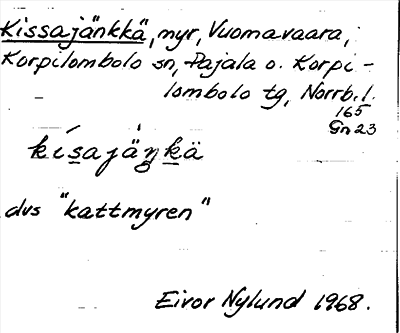 Kissajänkkä, myr, Vuomavaara,
Korpilombolo sn, Pajala o. Korpi-
lombolo tg, Norrb. l.
165
Gn 23
kísajäŋkä
dvs "kattmyren"
Eivor Nylund 1968.